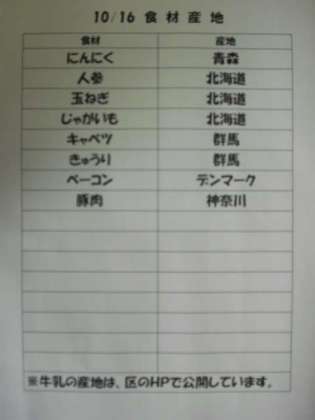 10/16 食材産地
食材 産地
にんにく 青森
人参 北海道
玉ねぎ 北海道
じゃがいも 北海道
キャベツ 群馬
きゅうり 群馬
ベーコン デンマーク
豚肉 神奈川
※牛乳の産地は、区のHPで公開しています。